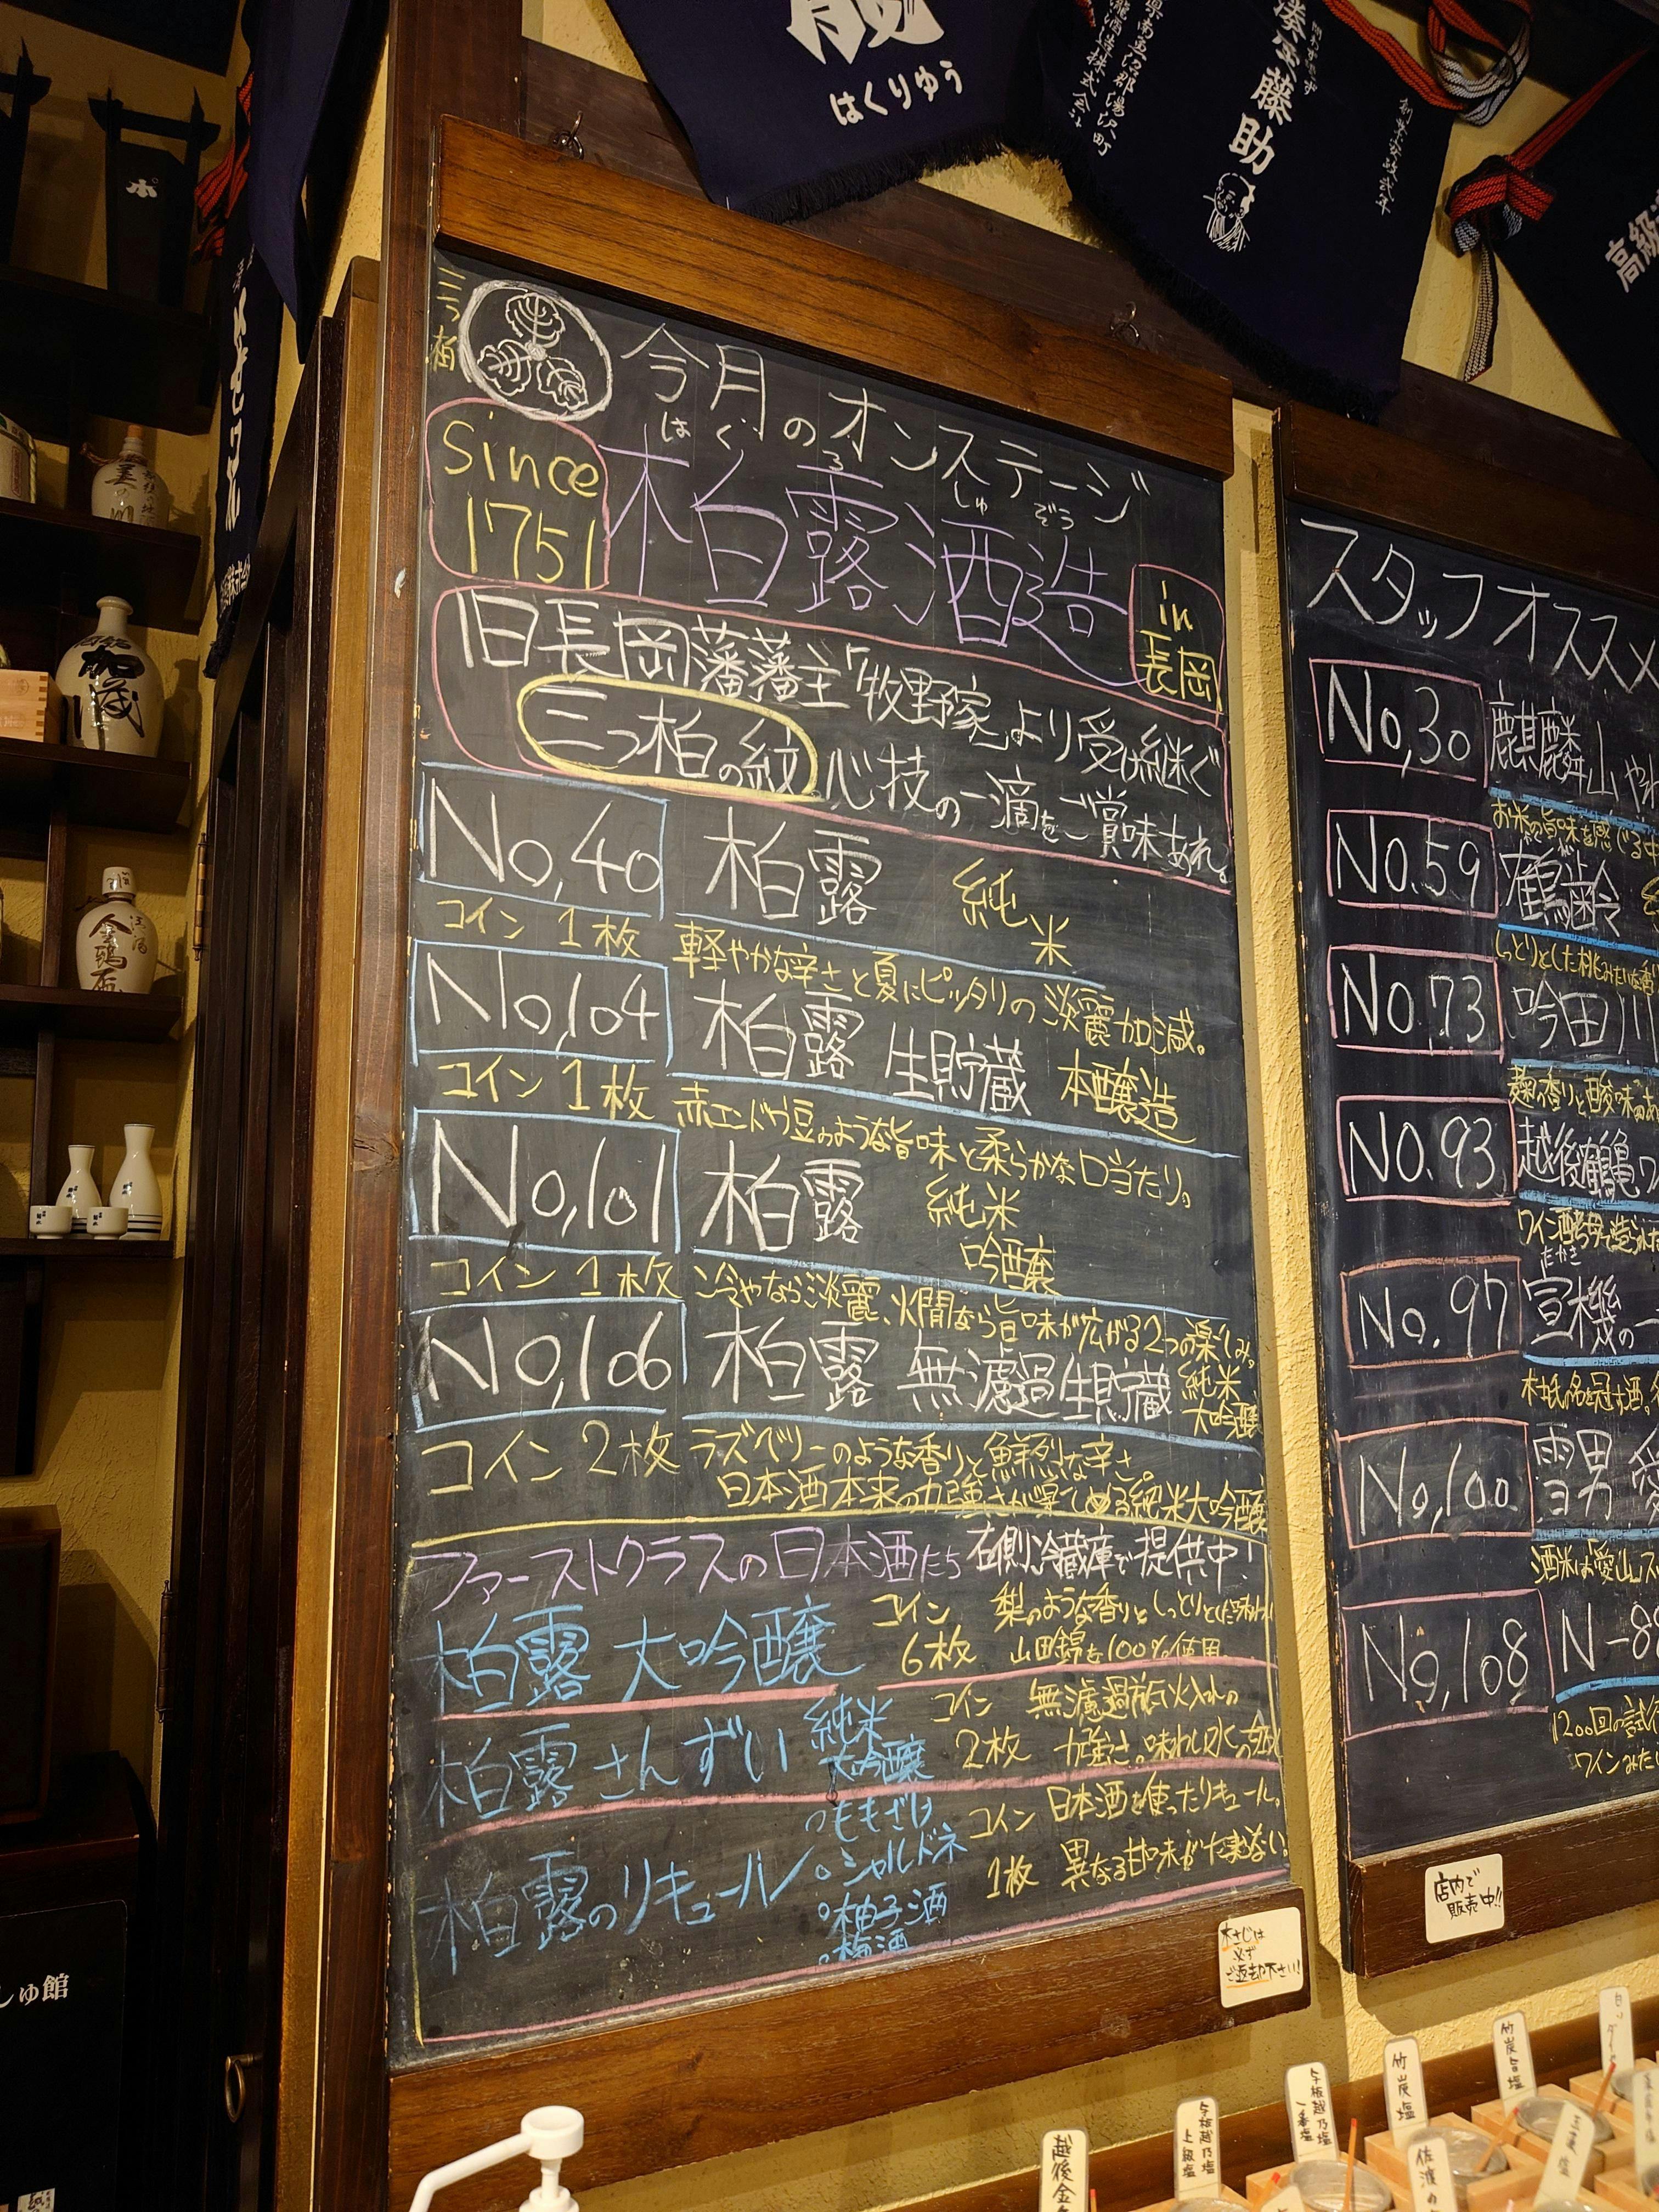 はくりゆう
湊屋藤助
高級
三つ柏
今月のオンステージ
since
1751
はくろしゅぞう
柏露酒造
in
長岡
旧長岡藩藩主「牧野家」より受け継ぐ
三つ柏の紋 心技の一滴をご賞味あれ。
No,40 柏露 純米
コイン 1枚 軽やかな辛さと夏にピッタリの淡麗加減。
No,104 柏露 生貯蔵 本醸造
コイン 1枚 赤エンドウ豆のような旨味と柔らかな口当たり。
No,101 柏露 純米
吟醸
コイン 1枚 冷やなら淡麗、火閒なら旨味が広がる2つの楽しみ。
No,106 柏露 無濾過生貯蔵 純米
大吟醸
コイン 2枚 ラズベリーのような香りと鮮烈な辛さ。
日本酒本来の力強さが楽しめる純米大吟醸
ファーストクラスの日本酒たち 右側冷蔵庫で提供中!
柏露 大吟醸 コイン 6枚 梨のような香りとしっとりとした味わい
山田錦を100%使用
柏露 さんずい 純米
大吟醸 コイン 2枚 無濾過瓶火入れの
力強さ。味わい水の如し
柏露のリキュール コイン 1枚 日本酒を使ったリキュール。
異なる甘味がたまらない!
ももざけ
シャルドネ
柚子酒
梅酒
木さじは
必ず
ご返却下さい!
スタッフオススメ
No,30 麒麟山
お米の旨味を感じる
No.59 鶴齢
しっとりとした桃みたいな香
No.73 吟田川
麹の香りと酸味のあ
No.93 越後鶴亀 ワ
ワイン酵母で造られた
No.97 宣機の一
杜氏の名を冠す酒。
No,100 雪男 愛
酒米は「愛山」
No,108 N-88
1200回の試
ワインみた
店内で
販売中!!
しゅ館
越後金
与板越乃塩
上級塩
与板越乃塩
一番塩
竹炭塩
竹炭旨塩